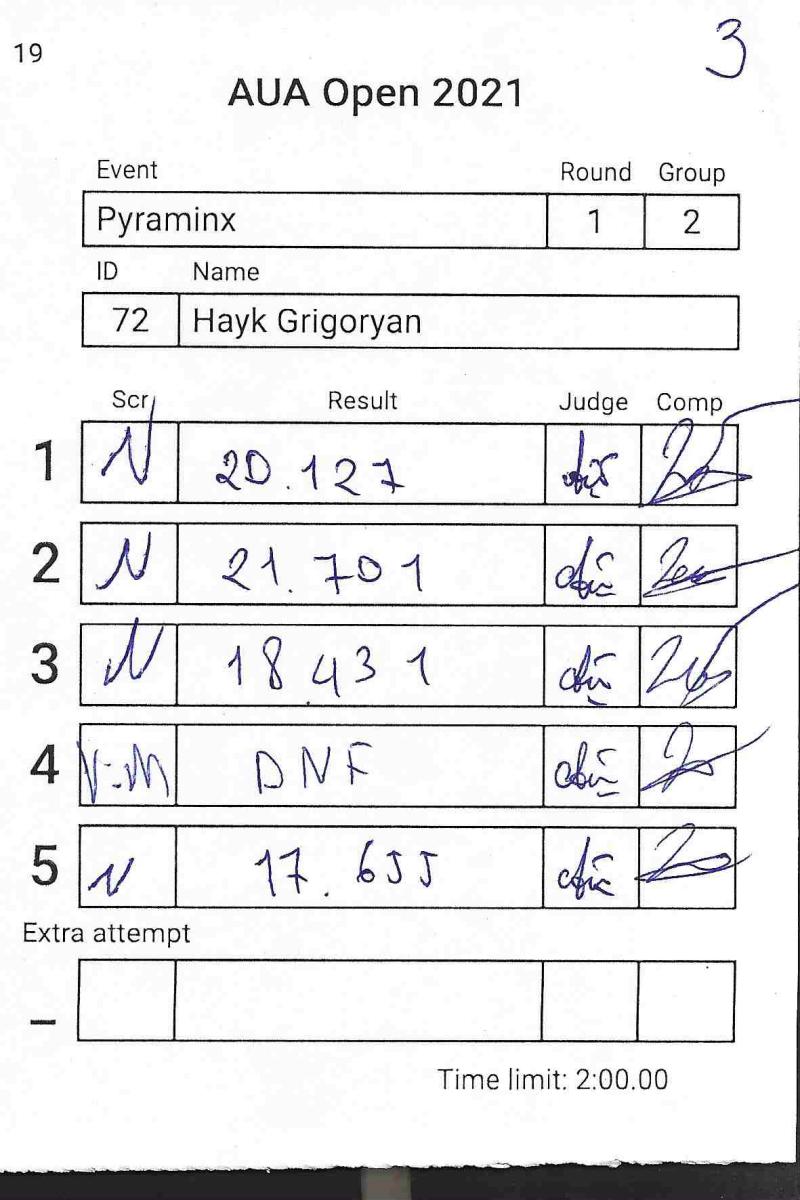 19
3
AUA Open 2021
Event Round Group
Pyraminx 1 2
ID Name
72 Hayk Grigoryan
Scr Result Judge Comp
1 N 20.127
2 N 21.701
3 N 18.431
4 DNF
5 N 17.655
Extra attempt
_
Time limit: 2:00.00